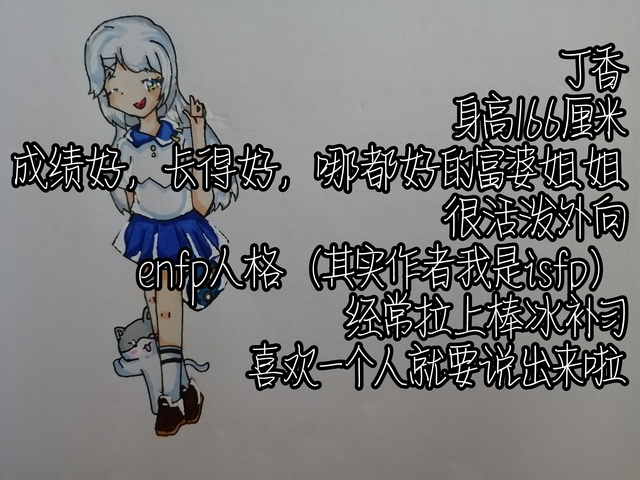 丁香
身高166厘米
成绩好，长得好，哪都好的富婆姐姐
很活泼外向
enfp人格（其实作者我是isfp）
经常拉上棒冰补习
喜欢一个人就要说出来啦